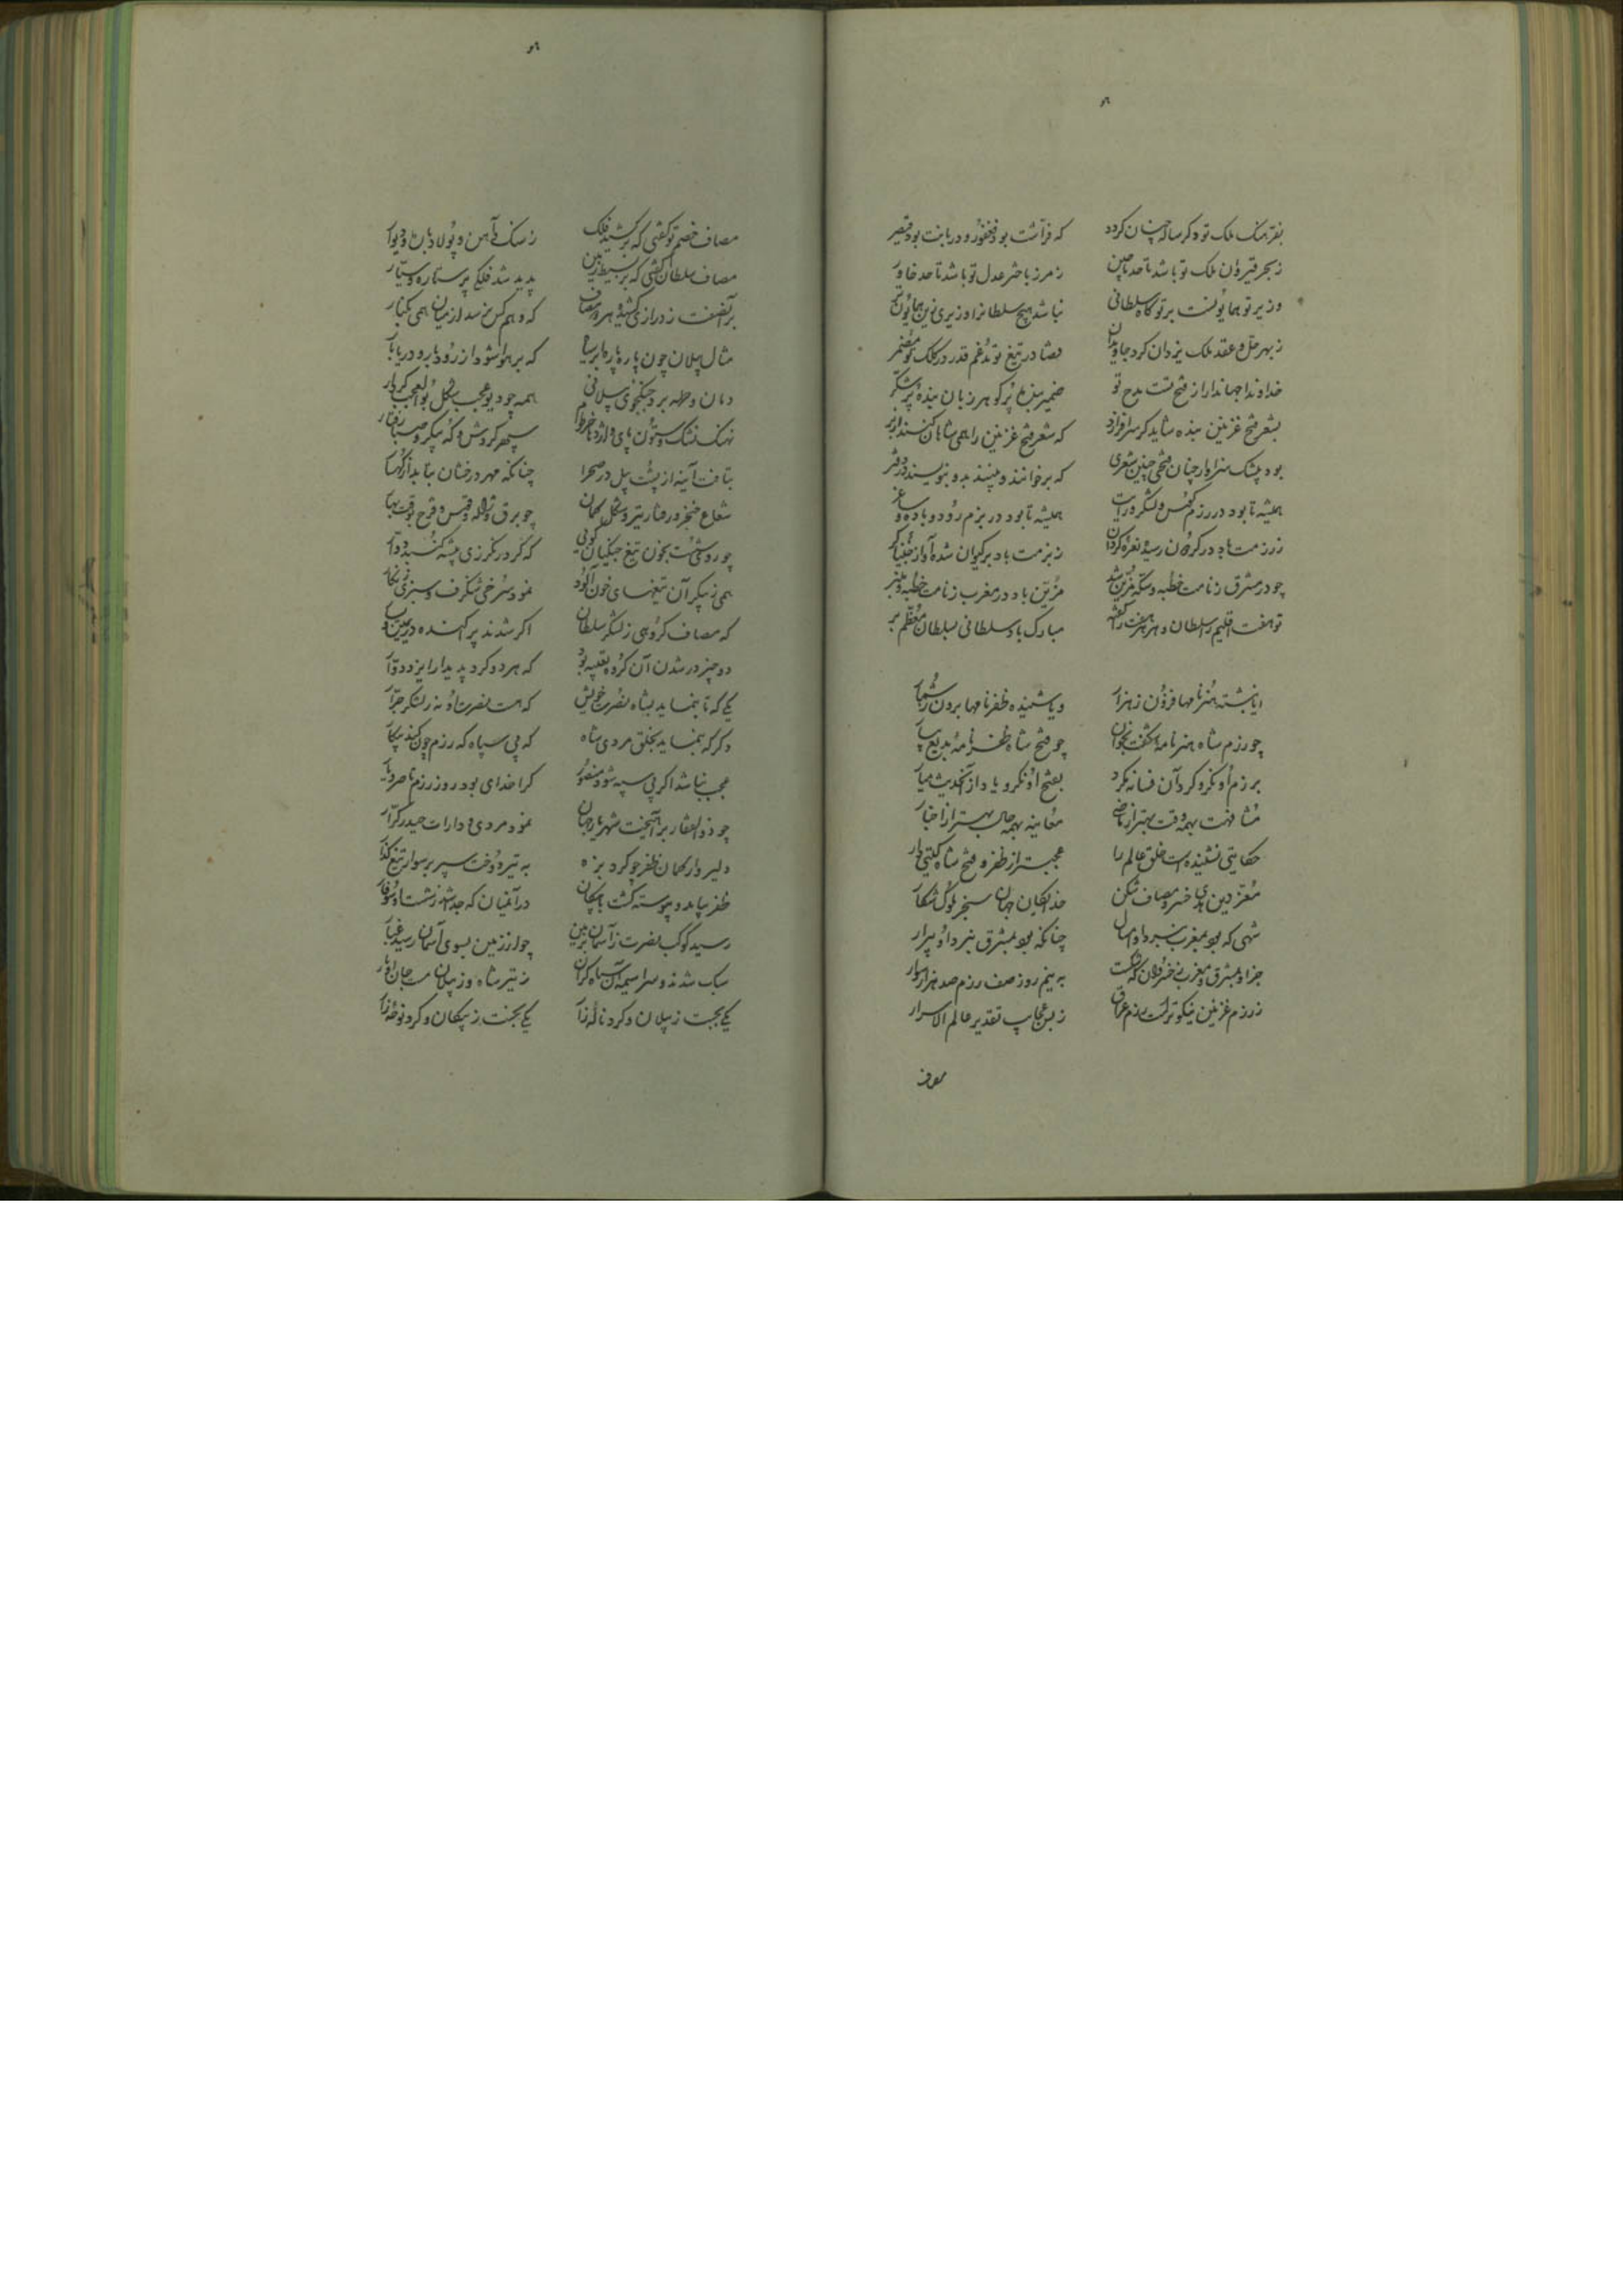 بفرهنگ ملک تو دکر ساله چنان کردد که فراشت بود فغفور و دربانت بود قیصر
ز بحر قیروان ملک تو باشد تا حد ماچین ز مرز باختر عدل تو باشد تا حد خاور
وزیر تو همایونست بر تو کاه سلطانی نباشد هیچ سلطانرا وزیری زین همایون تر
ز بهر حل و عقد ملک یزدان کرد جاویدان قضا در تیغ تو مدغم قدر در کلک تو مضمر
خداوندا جهاندارا ز فتح تست مدح تو ضمیر بنده پر کوهر زبان بنده پر شکر
بشعر فتح غزنین بنده شاید کر سرافرازد که شعر فتح غزنین را همی شاهان کنند از بر
بود بیشک سزاوار چنان فتحی چنین شعری که برخوانند و بپسندند و بنویسند در دفتر
همیشه تا بود در رزم کوس و لشکر و رایت همیشه تا بود در بزم رود و باده و ساغر
ز رزمت باد در کردون رسیده نعره کردان ز بزمت باد بر کیوان شده آواز خنیاکر
چو در مشرق ز نامت خطبه و سکه مزین شد مزین باد در مغرب ز نامت خطبه و منبر
تو هفت اقلیم را سلطان و هر هفت را کفته مبارک باد سلطانی بسلطان معظم بر
ایا نبشته هنرنامها فزون ز هزار و یا شنیده ظفرنامها برون ز شمار
چو رزم شاه هنرنامه شکفت بخوان چو فتح شاه ظفرنامه بدیع بیار
برزم او نکر و کرد آن فسانه مکرد بفتح او نکر و یاد از آنحدیث میار
مشافهت بهمه وقت بهتر از ماضی معاینه بهمه حال بهتر از اخبار
حکایتی نشنیده است خلق عالم را عجبتر از ظفر و فتح شاه کیتی دار
معز دین هدی خسرو مصاف شکن خدایکان جهان سنجر ملوک شکار
شهی که بود بمغرب نبرد او مهال چنانکه بود بمشرق نبرد او پیرار
جز او بمشرق و مغرب ز خسروان که شکست به نیم روز صف رزم صد هزار سوار
ز رزم غزنین نیکوترست رزم عراق ز بس عجایب تقدیر عالم الاسرار
مصاف
مصاف خصم تو کفتی که برکشید فلک ز سنک و آهن و پولاد باره و دیوار
مصاف سلطان کفتی که بر بسیط زمین پدید شد فلکی پر ستاره سیار
بر آنصفت ز درازی کشیده هر دو مصاف که وهم کس نرسد از میان همی بکنار
مثال پیلان چون پاره پاره ابر سیاه که بر هوا شود از رود بار و دریابار
دمان و حمله بر و جنکجوی پیلانی همه چو دیو عجب شکل بوالعجب کردار
نهنک نشک و ستون پای و اژدها خرطوم سپهر کردش و که پیکر و صبا رفتار
بتافت آینه از پشت پیل در صحرا چنانکه مهر درخشان بتابد از کهسار
شعاع خنجر و رفتار تیر و شکل کمان چو برق و ژاله و قوس و قزح بوقت بهار
چو روی شست بخون تیغ جنکیان کوئی که کر در نکرزی بیشه کنبد دوار
همی ز پیکر آن تیغهای خون آلود نمود سرخی شنکرف و سبزی زنکار
که مصاف کروهی ز لشکر سلطان اکر شدند پراکنده در یمین و یسار
دو چیز در شدن آن کروه تعبیه بود که هر دو کرد پدیدار ایزد دوار
یکی که تا بنماید بشاه نصرت خویش که هست نصرت او نه ز لشکر جرار
دکر که بنماید بخلق مردی شاه که بی سپاه که رزم چون کند پیکار
عجب نباشد اکر بی سپه شود منصور کرا خدای بود روز رزم ناصر و یار
چو ذوالفقار برآهیخت شهریار جهان نمود مردی و دارات حیدر کرار
دلیروار کمان ظفر چو کرد بزه به تیر دوخت سپر بر سوار تیغ کذار
ظفر بیامد و پیوسته کشت با پیکان در آنمیان که جدا شد ز شست او سوفار
رسید کوکب نصرت ز آسمان بزمین چو از زمین بسوی آسمان رسید غبار
سبک شدند و سراسیمه آن سپاه کران ز تیر شاه و ز پیلان مست جان اوبار
یکی بجست ز پیلان و کرد ناله زار یکی بجست ز پیکان و کرد نوحه زار